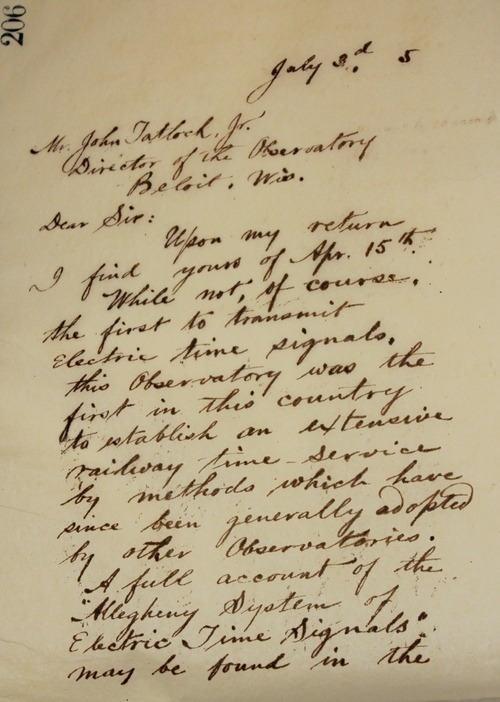 206
July 3.d 5
Mr. John Tatlock, Jr.
Director of the Observatory
Beloit, Wis.
Dear Sir:
Upon my return
I find yours of Apr. 15th.
While not, of course,
the first to transmit
Electric time signals,
this Observatory was the
first in this country
to establish an extensive
railway time-service
by methods which have
since been generally adopted
by other Observatories.
A full account of the
"Allegheny System of
Electric Time Signals"
may be found in the